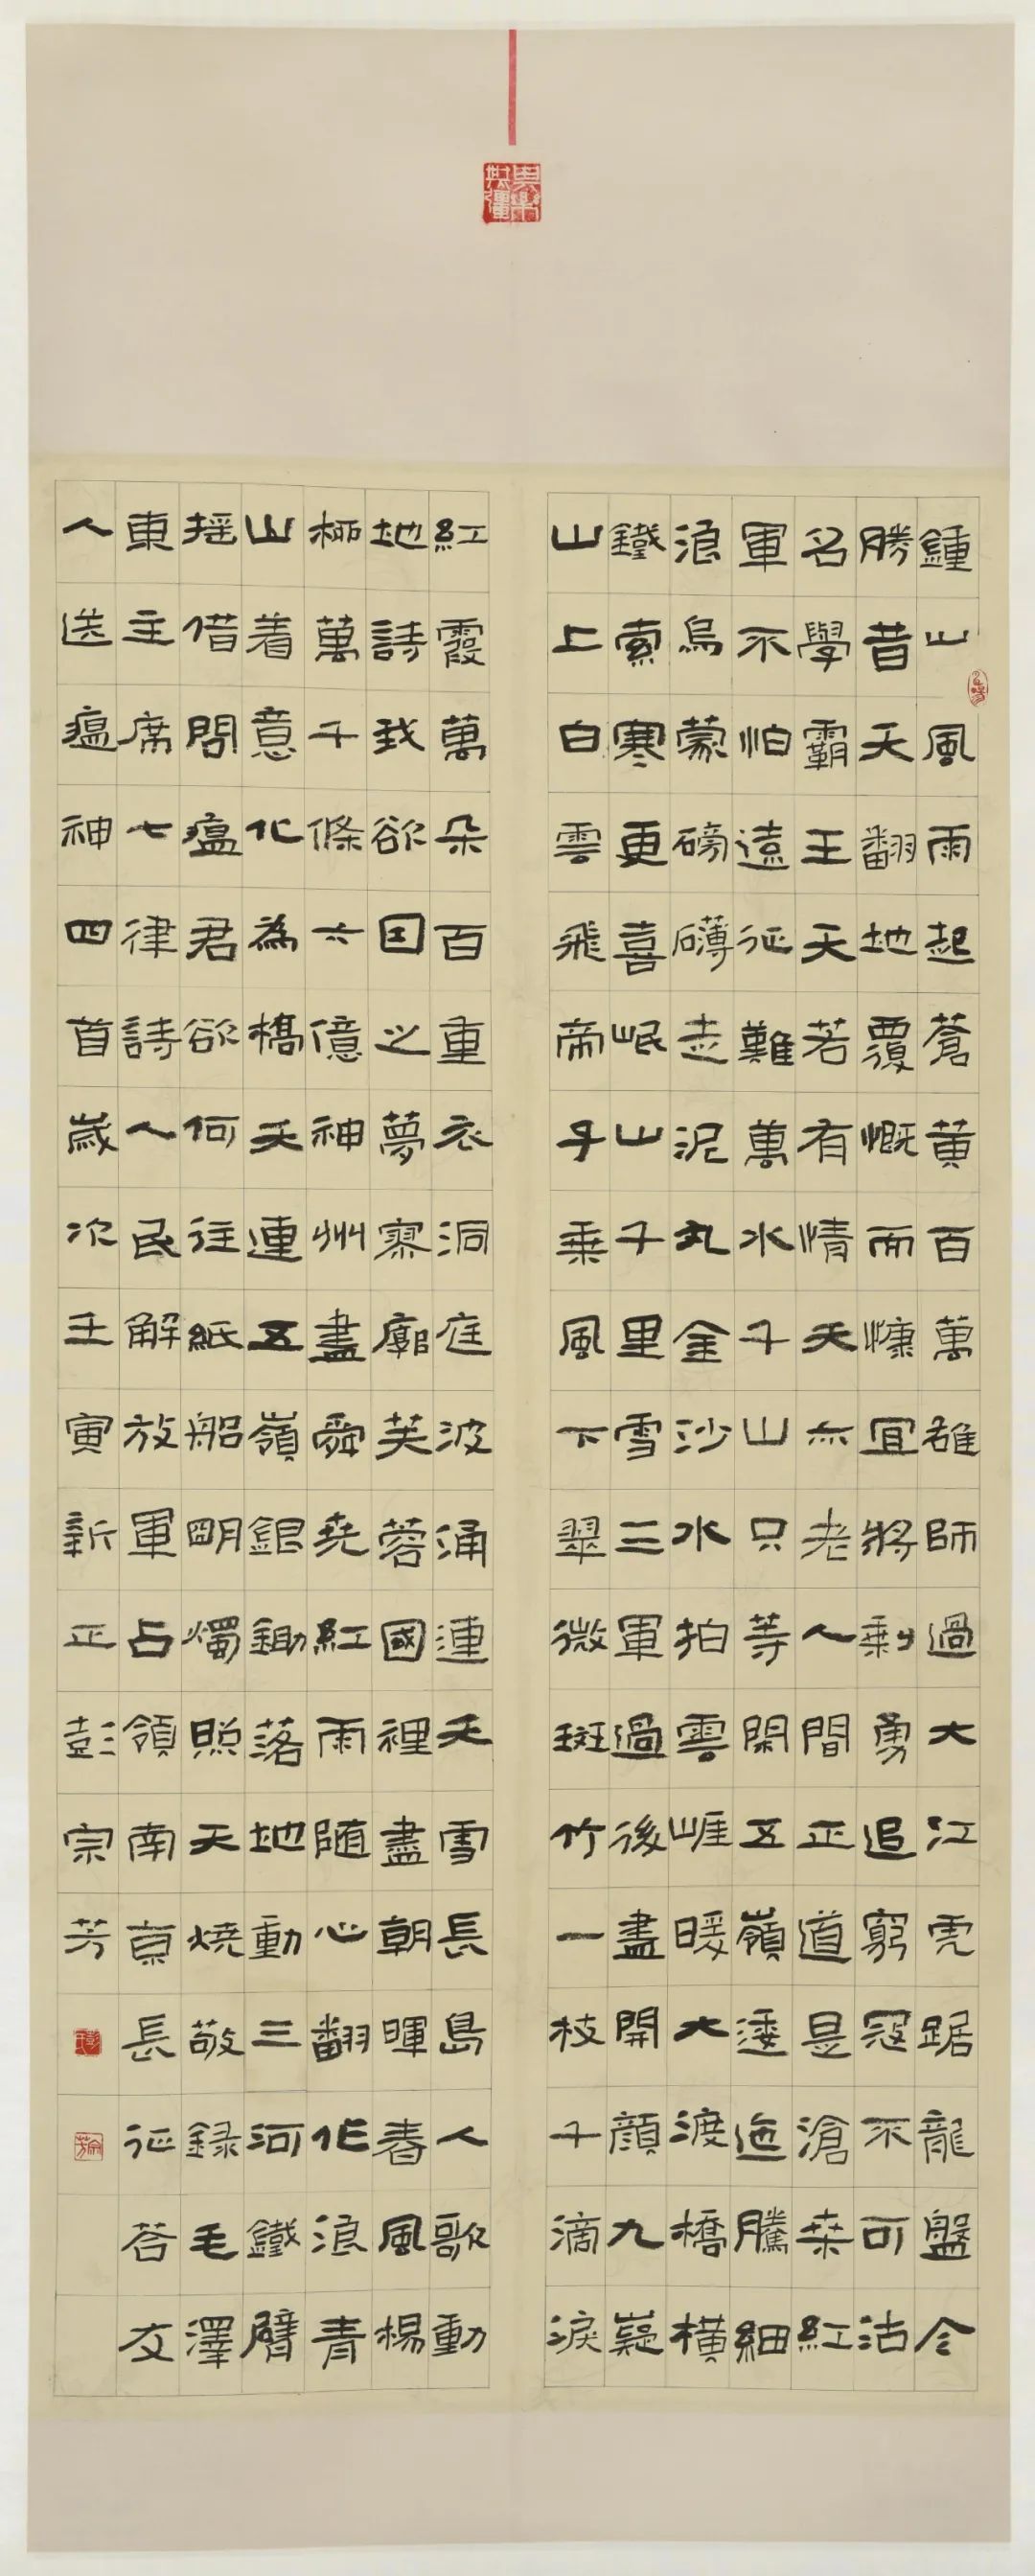 鍾山風雨起蒼黃百萬雄師過大江虎踞龍盤今
勝昔天翻地覆慨而慷宜將剩勇追窮寇不可沽
名學霸王天若有情天亦老人間正道是滄桑紅
軍不怕遠征難萬水千山只等閑五嶺逶迤騰細
浪烏蒙磅礴走泥丸金沙水拍雲崕暖大渡橋橫
鐵索寒更喜岷山千里雪三軍過後盡開顏九嶷
山上白雲飛帝子乘風下翠微斑竹一枝千滴淚
紅霞萬朵百重衣洞庭波涌連天雪長島人歌動
地詩我欲囙之夢寥廓芙蓉國裡盡朝暉春風楊
柳萬千條六億神州盡舜堯紅雨随心翻作浪青
山着意化為橋天連五嶺銀鋤落地動三河鐵臂
搖借問瘟君欲何往紙船明燭照天燒敬錄毛澤
東主席七律詩人民解放軍占領南京長征答友
人送瘟神四首歲次壬寅新正彭宗芳